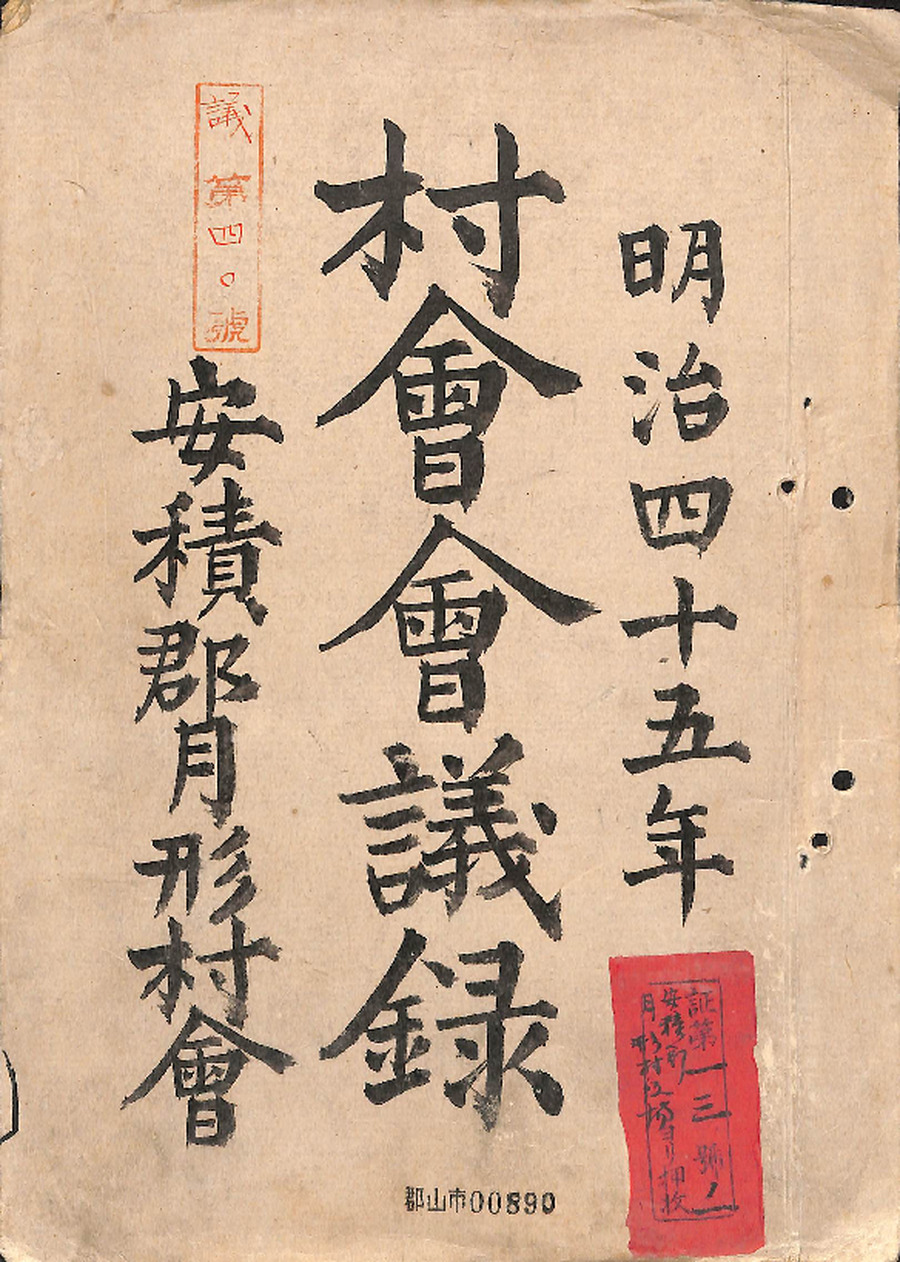 明治四十五年
村會會議録
議第四〇號
安積郡月形村會
証第一三號ノ一
安積郡
月形村役場ヨリ押收
郡山市00890